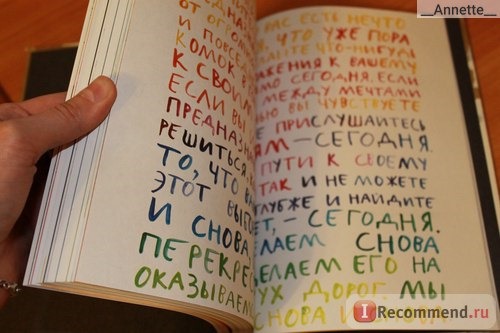 __Annette__
ЗНА
ОТ ОГРОМ
И ПОВСЕ
КОМОК В
К СВОИМ
ЕСЛИ ВЫ
ПРЕДНАЗН
РЕШИТЬСЯ
ТО, ЧТО В
ЭТОТ ВЫБО
И СНОВА
ПЕРЕКРЕ
ОКАЗЫВАЕМ
ВАС ЕСТЬ НЕЧТО
, ЧТО УЖЕ ПОРА
ЛАЙТЕ ЧТО-НИБУДЬ
АЖЕНИЯ К ВАШЕМУ
МО СЕГОДНЯ. ЕСЛИ
МЕЖДУ МЕЧТАМИ
ВЫ ЧУВСТВУЕТЕ
ПРИСЛУШАЙТЕСЬ
ЯМ — СЕГОДНЯ.
ПУТИ К СВОЕМУ
ТАК И НЕ МОЖЕТЕ
ГЛУБЖЕ И НАЙДИТЕ
ЕТ, — СЕГОДНЯ.
ЕЛАЕМ СНОВА
ДЕЛАЕМ ЕГО НА
УХ ДОРОГ. МЫ
СНОВА И СНОВА
IRecommend.ru